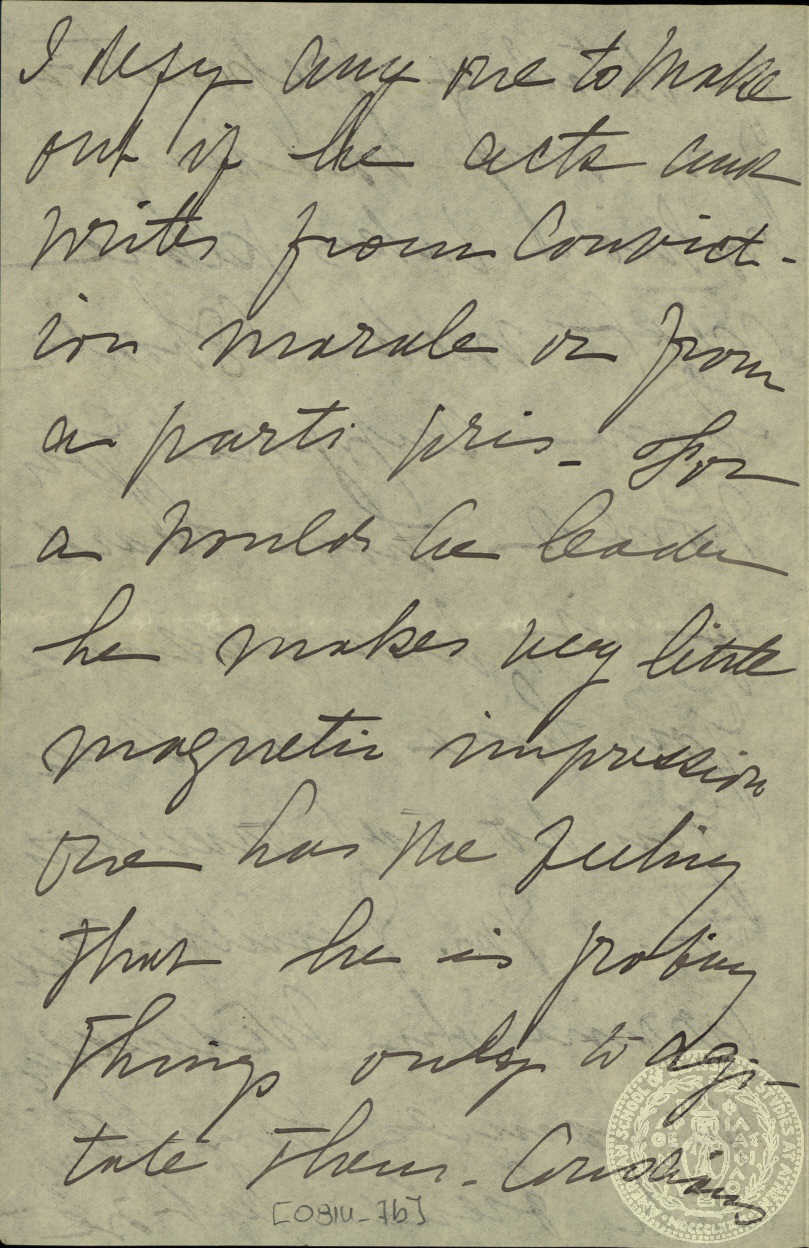 I defy any one to make
out if he acts and
writes from Convict-
ion morale or from
a parti pris - For
a would be leader
he makes very little
magnetic impression
one has the feeling
that he is probing
things only to agi-
tate them.
[OGIU_7b]